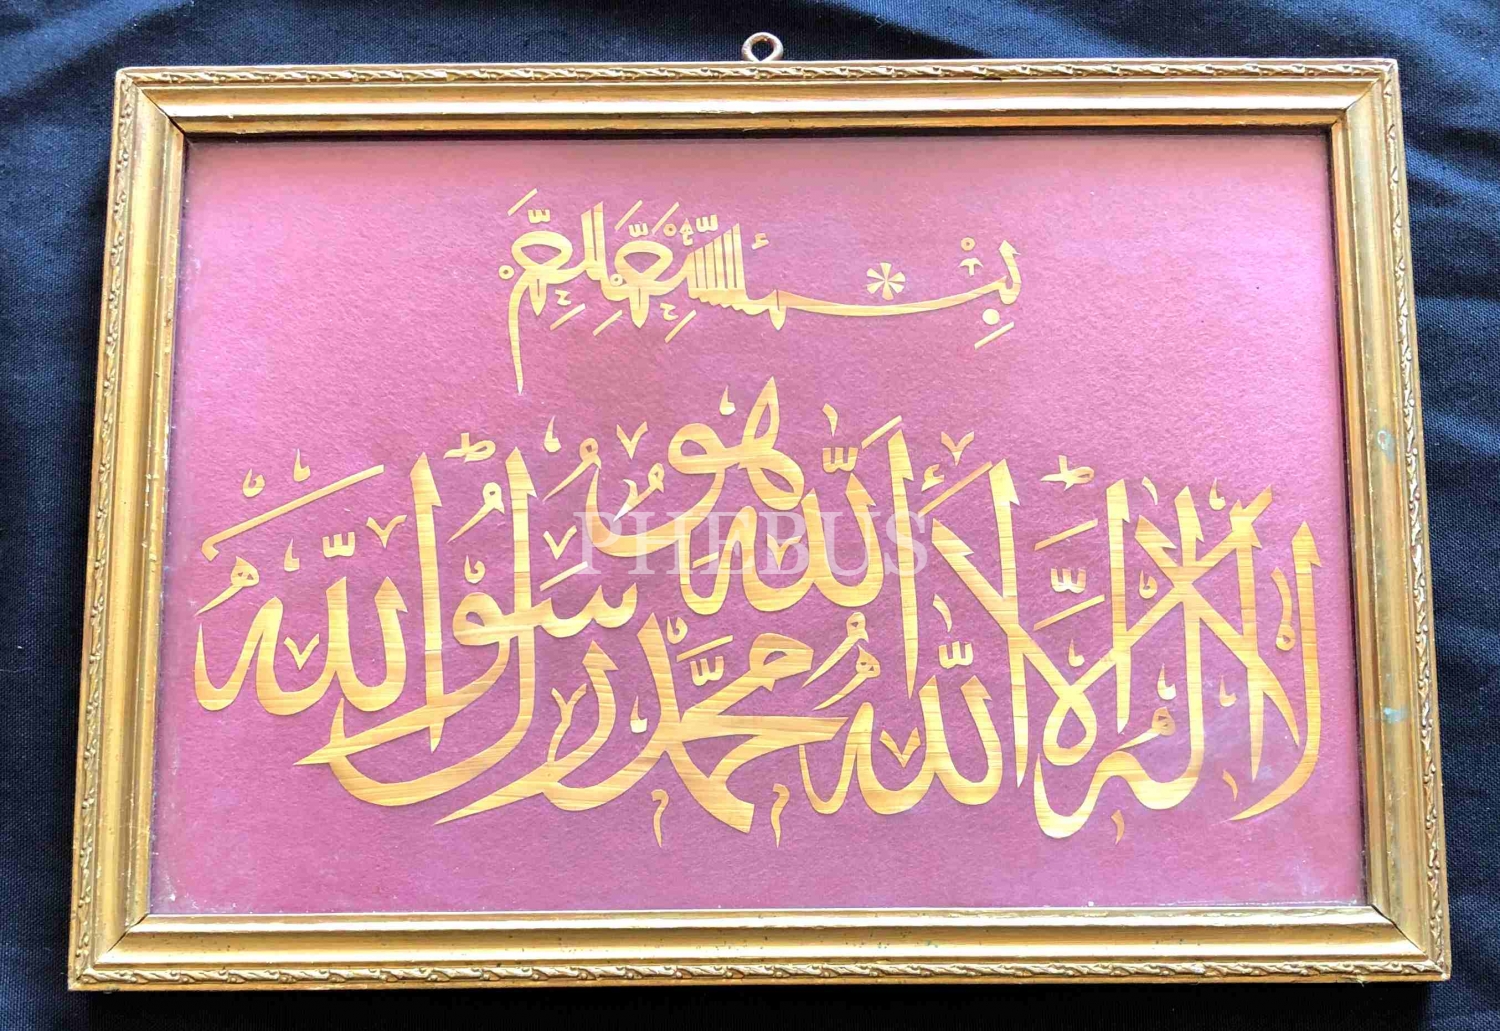 بسم الله الرحمن الرحيم
هو
لا اله الا الله محمد رسول الله
PHEBUS